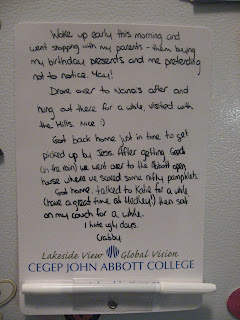 Woke up early this morning and
went shopping with my parents - them buying
my birthday presents and me pretending
not to notice. Yay!
Drove over to Nana's after and
hung out there for a while, visited with
the Hills. Nice :)
Got back home just in time to get
picked up by Jess. After getting Geoff
(in the rain) we went over to the Abbott open
house where we scored some nifty pamphlets.
Got home, talked to Katie for a while
(have a great time at Medley!) then sat
on my couch for a while.
I hate ugly days.
Crabby.
Lakeside View Global Vision
CEGEP JOHN ABBOTT COLLEGE